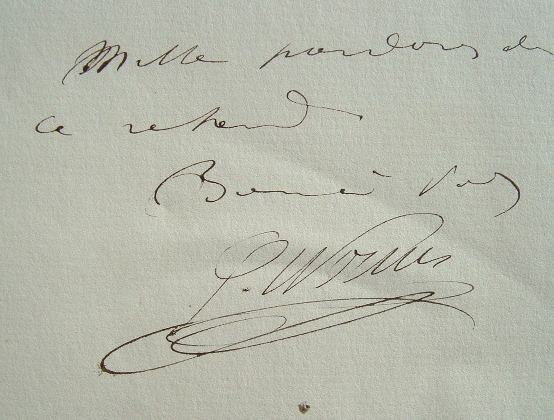 Mille pardons de
ce retard
Bien à vous
G. Worms